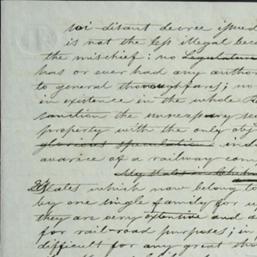 soi-disant decree issued
is not the less illegal bec
the mischief: no Legislature
has or ever had any autho
to general thoroughfares; no
in existence in the whole
sanction the unnecessary
property with the only obj
glorious speculation ind
avarice of a railway com
My states or
States which now belong to
by one single family for u
they are very extensive and a
for rail-road purposes; in
difficult for any great